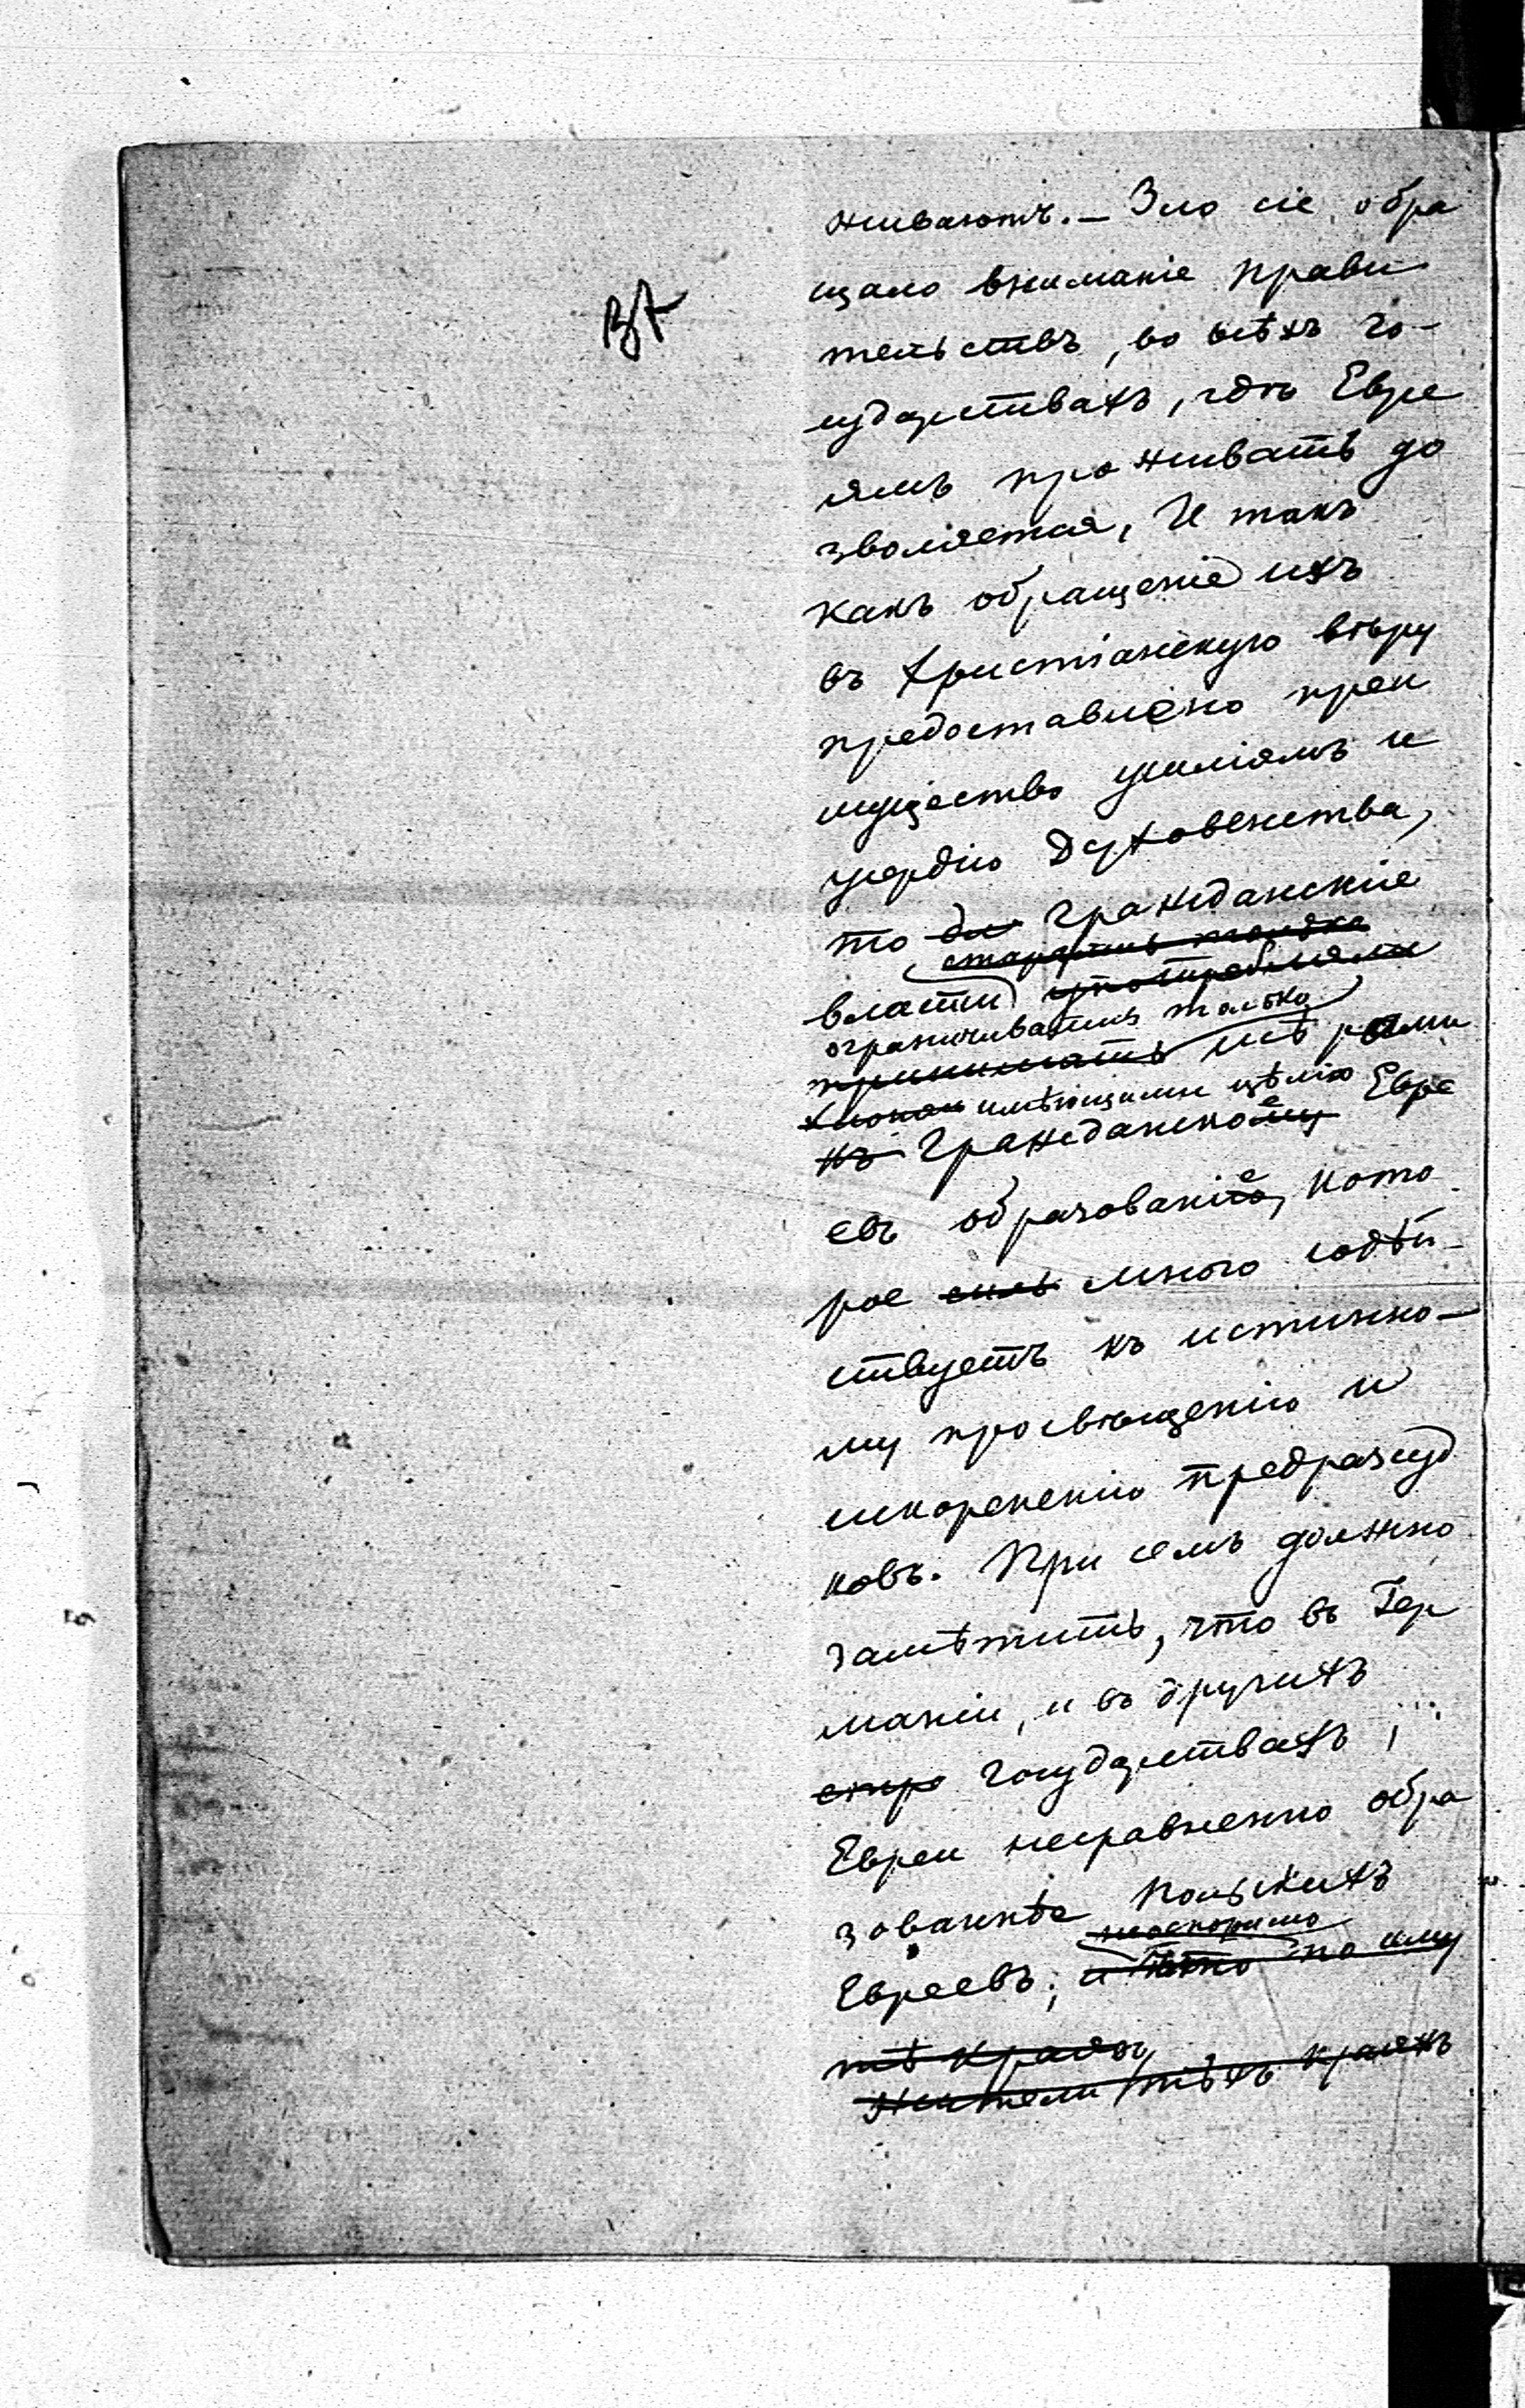 живаютъ. — Зло сіе обра
щало вниманіе прави
тельствъ, во всѣхъ го-
сударствахъ, гдѣ Евре
ямъ проживать до
зволяется, И такъ
какъ обращеніе ихъ
въ Христіанскую вѣру
предоставлено преи
мущество усиліямъ и
усердію Духовенства,
то гражданскіе
власти употребляли
ограничиваться только
принимать мѣрами
имѣющими цѣлію
къ Гражданское Евре
евъ образованіе, кото
рое много содѣй-
ствуетъ къ истинно-
му просвѣщенію и
искорененію предразсуд
ковъ. При семъ должно
замѣтить, что въ Гер
маніи, и въ другихъ
государствахъ,
Евреи несравненно обра
зованнѣе Польскихъ
неоспоримо
Евреевъ; и
тѣ края
жители тѣхъ краяхъ